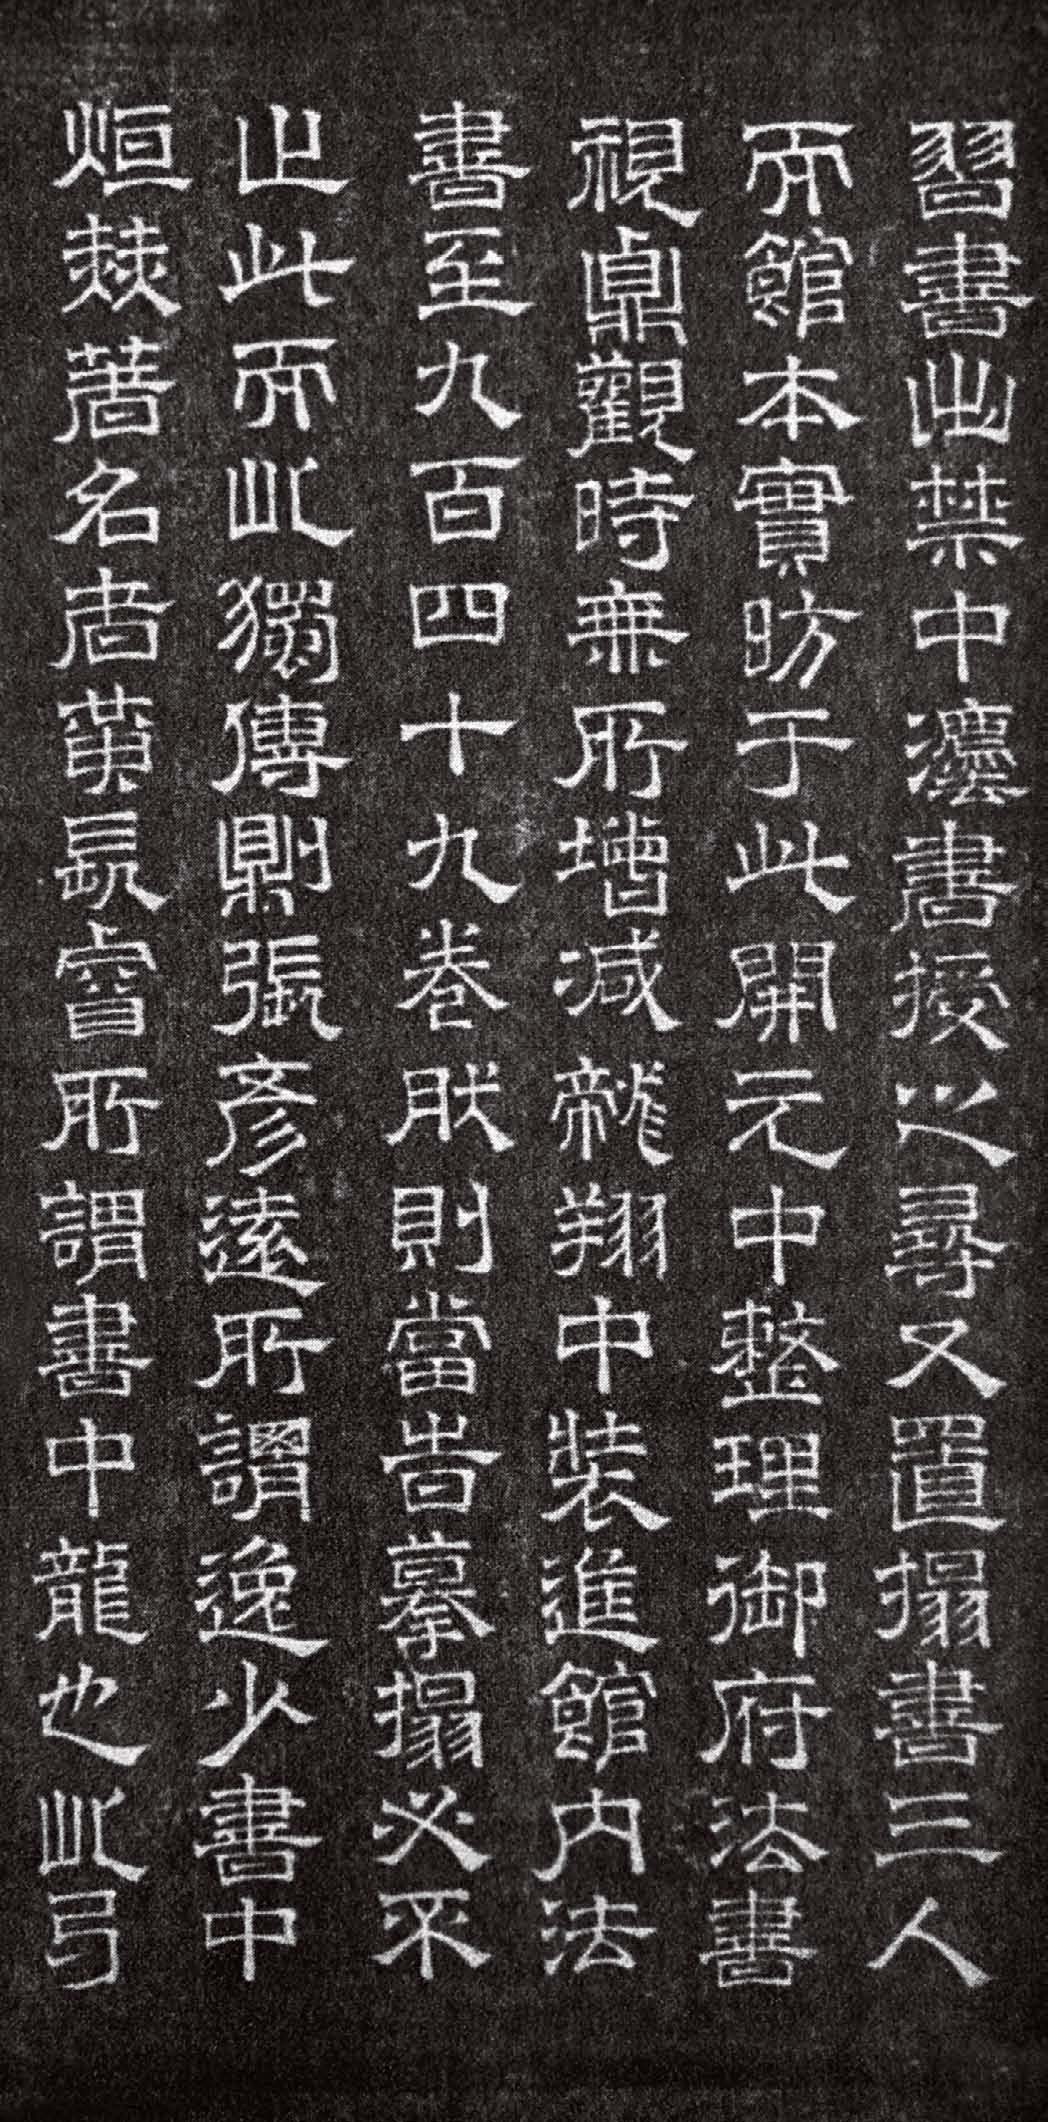 習書出禁中灋書授之尋又置搨書三人
而館本實昉于此開元中整理御府法書
視貞觀時無所增減龍翔中裝進館内法
書至九百四十九卷肰則當旹摹搨必不
止此而此獨傳則張彥遠所謂逸少書中
烜赫著名者黃長睿所謂書中龍也此弓